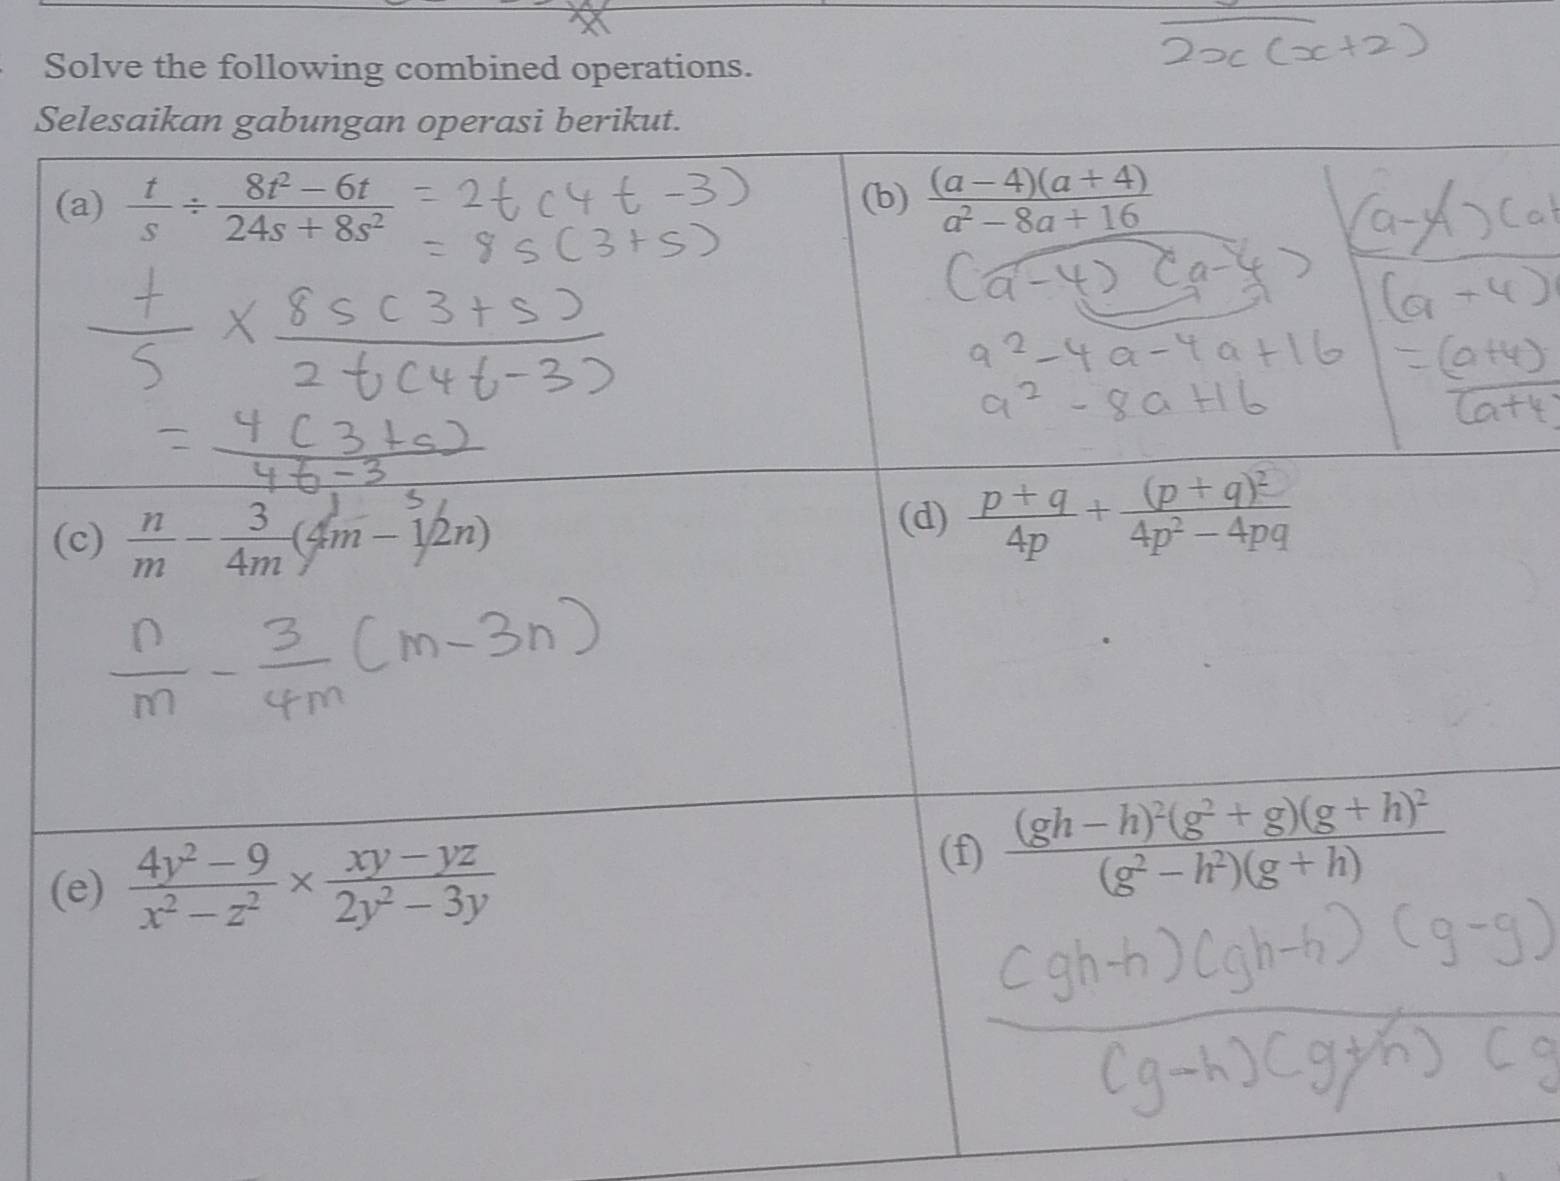 2x(x+2)
Solve the following combined operations.
Selesaikan gabungan operasi berikut.
(a) t/s ÷ (8t² − 6t)/(24s + 8s²) = 2t(4t−3)
= 8s(3+s)
t/s × 8s(3+s)/2t(4t−3)
= 4(3+s)/4t−3
(b) (a − 4)(a + 4)/(a² − 8a + 16)
(a−4)(a−4)
a²−4a−4a+16
a²−8a+16
(a−4)(a+
= (a+4)
(c) n/m − 3/4m (4m − 12n)
1 3
n/m − 3/4m (m−3n)
(d) (p + q)/4p + (p + q)²/(4p² − 4pq)
(e) (4y² − 9)/(x² − z²) × (xy − yz)/(2y² − 3y)
(f) (gh − h)²(g² + g)(g + h)²/(g² − h²)(g + h)
(gh−h)(gh−h)(g−g)
(g−h)(g+h)(g